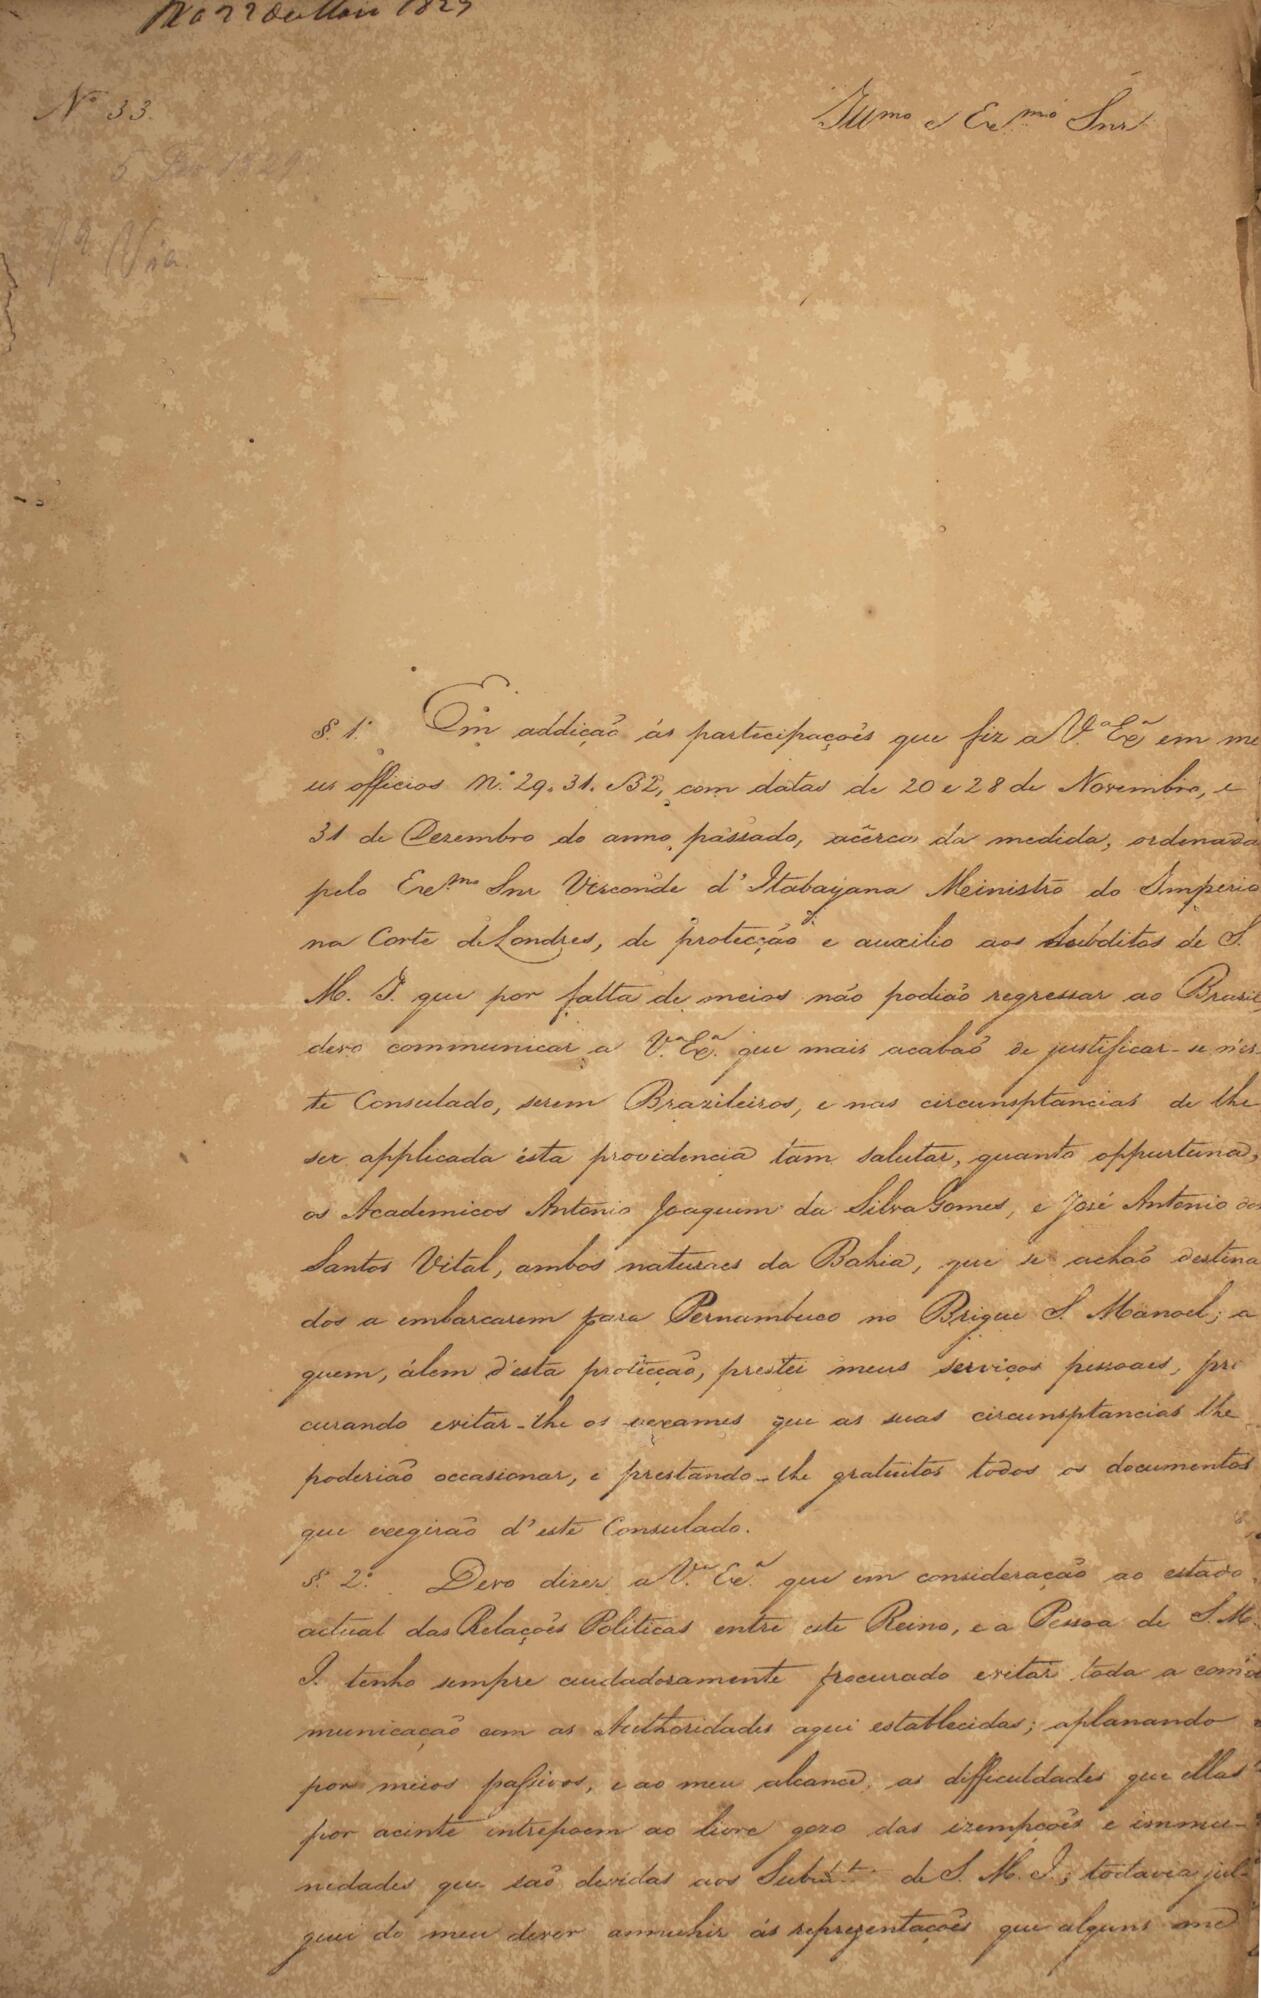 22 de Maio 1829
Nº 33.
Illmo e Exmo Snr
5 1829.
1ª Via.
§. 1º Em addição ás partecipações que fiz a Vª Exª em me
us officios Nº 29. 31. e 32, com datas de 20 e 28 de Novembro, e
31 de Dezembro do anno passado, acêrca da medida, ordenada
pelo Exmo Snr Visconde d'Itabayana Ministro do Imperio
na Corte de Londres, de protecção e auxilio aos Subditos de S.
M. I. que por falta de meios não podião regressar ao Brazil,
devo communicar a Vª Exª que mais acabaõ de justificar-se nes-
te Consulado, serem Brazileiros, e nas circunsptancias de lhe
ser applicada ésta providencia tam salutar, quanto oppurtuna,
os Academicos Antonio Joaquim da Silva Gomes, e José Antonio dos
Santos Vital, ambos naturaes da Bahia, que se achaõ destina
dos a embarcarem para Pernambuco no Brigue S. Manoel; a
quem, álem d'esta protecção, prestei meus serviços pessoaes, pro
curando evitar-lhe os vexames que as suas circunsptancias lhe
poderião occasionar, e prestando-lhe gratuitos todos os documentos
que exegirão d'este Consulado.
§. 2º. Devo dizer a Vª Exª que em consideração ao estado
actual das Relações Politicas entre este Reino, e a Pessoa de S. M.
I. tenho sempre cuidadosamente procurado evitar toda a com
municação com as Authoridades aqui establecidas; aplanando
por meios passivos, e ao meu alcance, as difficuldades que ellas
por acinte intrepoem ao livre gozo das izempções e immu-
nidades que saõ devidas aos Subditos de S. M. I.; todavia jul-
guei do meu dever annuhir ás reprezentações que alguns me